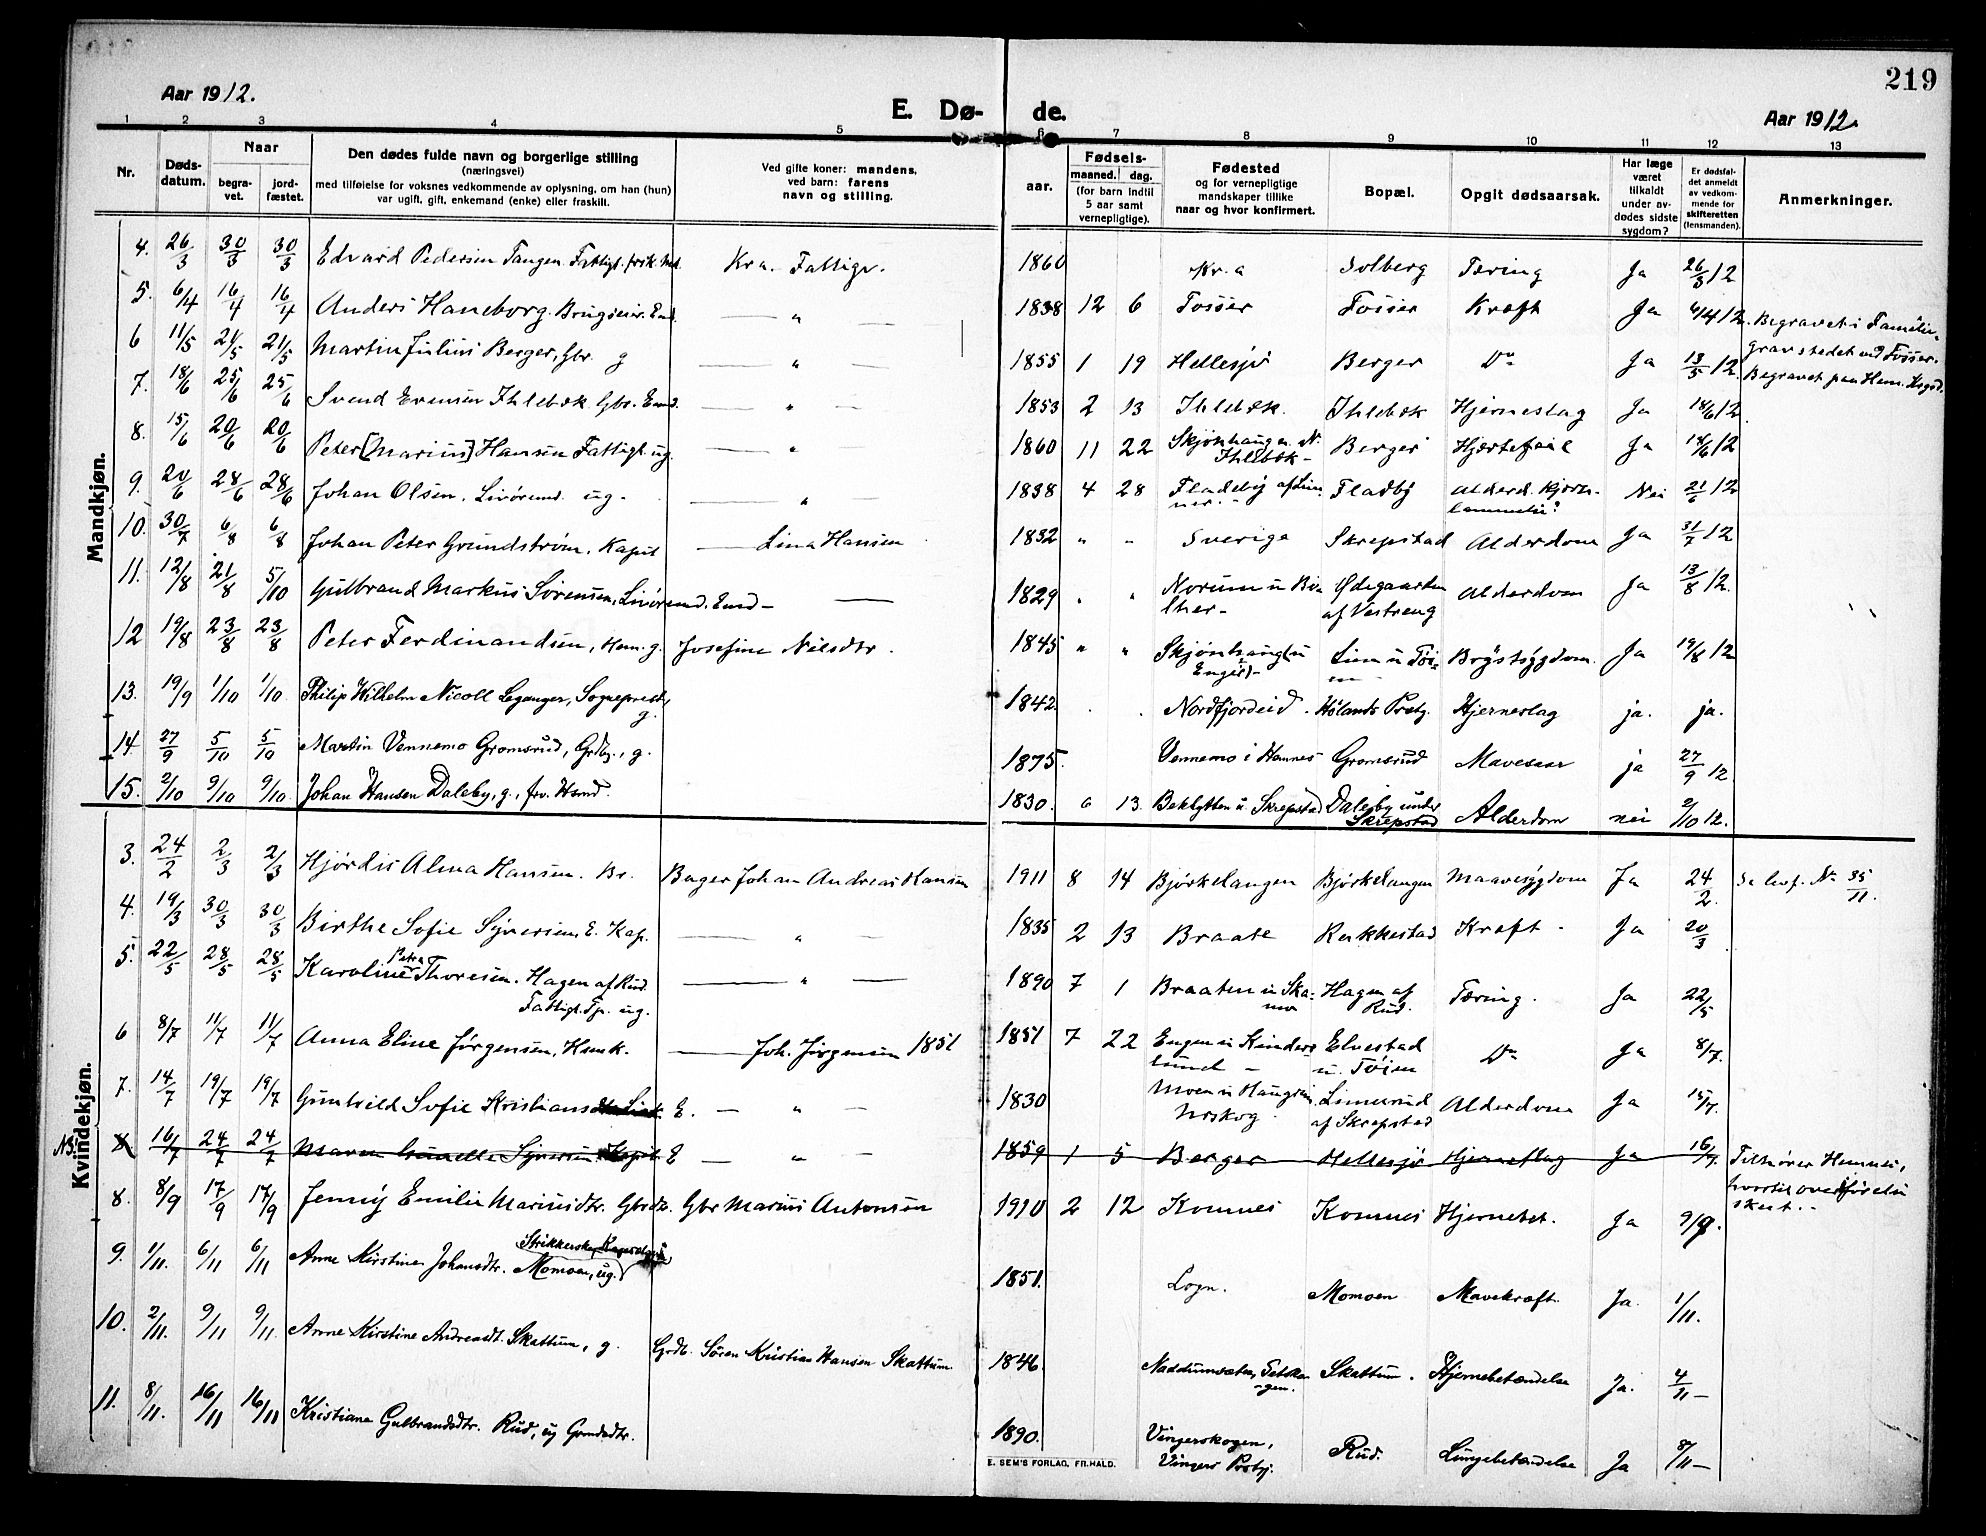 219
Aar 1912.
E. Dø-
de.
Aar 1912.
1 2 3 4 5 6 7 8 9 10 11 12 13
Nr.
Døds-
datum.
Naar
begra-
vet.
jord-
fæstet.
Den dødes fulde navn og borgerlige stilling
(næringsvei)
med tilføielse for voksnes vedkommende av oplysning, om han (hun)
var ugift, gift, enkemand (enke) eller fraskilt.
Ved gifte koner: mandens,
ved barn: farens
navn og stilling.
aar.
Fødsels-
maaned. dag.
(for barn indtil
5 aar samt
vernepligtige).
Fødested
og for vernepligtige
mandskaper tillike
naar og hvor konfirmert.
Bopæl.
Opgit dødsaarsak.
Har læge
været
tilkaldt
under av-
dødes sidste
sygdom?
Er dødsfal-
det anmeldt
av vedkom-
mende for
skifteretten
(lensmanden).
Anmerkninger.
Mandkjøn.
4. 26/3 30/3 30/3 Edvard Pedersen Tangen. Fattigl. Kra. Fattigv. 1860 Kr.a Solberg Tæring Ja 26/3 12
5. 6/4 16/4 16/4 Anders Haneborg. Brugseier. Emd. — " — 1838 12 6 Fosser Fosser Kræft Ja 6/4 12. Begravet i Familie-
gravstedet ved Fosser.
6 11/5 21/5 21/5 Martin Julius Berger, Gbr. g " 1855 1 19 Hellesjø Berger Do Ja 13/5 12. Begravet paa Hem. Kgd.
7. 18/6 25/6 25/6 Svend Evensen Ihlebæk Gbr. Emd. — " — 1853 2 13 Ihlebæk. Ihlebæk Hjerneslag Ja 18/6 12
8. 15/6 20/6 20/6 Peter [Marius] Hansen Fattigl. ug. " 1860 11 22 Skjønhaugen N.
Ihlebæk - Berger Hjertefeil Ja 18/6 12
9. 20/6 28/6 28/6 Johan Olsen. Livøremd. ug. — " — 1838 4 28 Fladeby af Lier-
Fladby Alderd. Nei 21/6 12
10. 30/7 6/8 6/8 Johan Peter Grundstrøm, Kapit — Lina Hansen 1832 " " Sverige Skrepstad Alderdom Ja 31/7 12
11. 12/8 21/8 5/10 Gulbrand Markus Sørensen, Livøremd. Emd — — 1829 " " Norum u
Ødegaarden
af Vestreng Alderdom Ja 13/8 12.
12 19/8 23/8 23/8 Peter Ferdinandsen, Hem. g. Josefine Nilsdtr. 1845 " " Skjønhaug u
Enger - Lien u Tøi-
en Brystsygdom. Ja 19/8 12
13. 19/9 1/10 1/10 Philip Wilhelm Nicoll Leganger, Sogneprest,
g. 1842. Nordfjordeid. Hølands Prstg. Hjerneslag ja. ja.
14 27/9 5/10 5/10 Martin Vennemo Gromsrud, Grdbr., g. 1875. Vennemo i Hemnes Gromsrud Mavesaar ja 27/9 12
15. 2/10 9/10 9/10 Johan Hansen Daleby, g., frv. Hsmd. 1830. 13. Bakhytten u Skrepstad Daleby under
Skrepstad Alderdom nei 2/10 12.
Kvindekjøn.
3. 24/2 2/3 2/3 Hjørdis Alma Hansen. Br. Bager Johan Andreas Hansen 1911 8 14 Bjørkelangen Bjørkelangen Mavesygdom Ja 24/2. No 35/11.
4. 19/3 30/3 30/3 Birthe Sofie Syversen E. Kap. — " — 1835 2 13 Braate Rakkestad Kræft - Ja 20/3
5. 22/5 28/5 28/5 Karoline Petra Thoresen. Hagen af Rud.
Fattigl. Tj. ug. — " — 1890 7 1 Braaten u Ska-
Hagen af
Rud. Tæring. Ja 22/5
6 8/7 11/7 11/7 Anna Eline Jørgensen, Husk. — Joh. Jørgensen 1851 1851 7 22 Engen u Kinders-
lund - Elvestad
u. Tøien Do Ja 8/7.
7. 14/7 19/7 19/7 Gunhild Sofie Kristians E. — " — 1830 Moen u Haugstein
Urskog. Limerud
af Skrepstad Alderdom Ja 15/7.
NB. 8 16/7 24/7 24/7 Maren Gunelle Syversen Kapit. E — " — 1859 1 5 Berger Hellesjø Hjerneslag Ja 16/7. Tilhører Hemnes,
hvortil overførelse
skeet. -
8. 8/9 17/9 17/9 Jenny Emilie Mariusdtr. Gbrdtr. Gbr Marius Antonsen 1910 2 12 Komnes Komnes Hjernebet. Ja 9/9.
9. 1/11. 6/11 6/11 Anne Kirstine Johansdtr. Strikkerske,
Momoen, ug. 1851. Sogn. Momoen Mavekræft. Ja. 1/11.
10. 2/11. 9/11 9/11. Anne Kirstine Andreasdt. Skattum, g. Grdb. Søren Kristian Hansen Skattum 1846. Naddumsæter, Fetska-
-gen. Skattum. Hjernebetændelse Ja. 4/11 -
11. 8/11. 16/11 16/11 Kristiane Gulbrandsdtr. Rud, ug Grmdsdtr. 1890. Vingerskogen,
Vinger Prstgj. Rud. Lungebetændelse Ja 8/11 -
E. SEM'S FORLAG, FR.HALD.